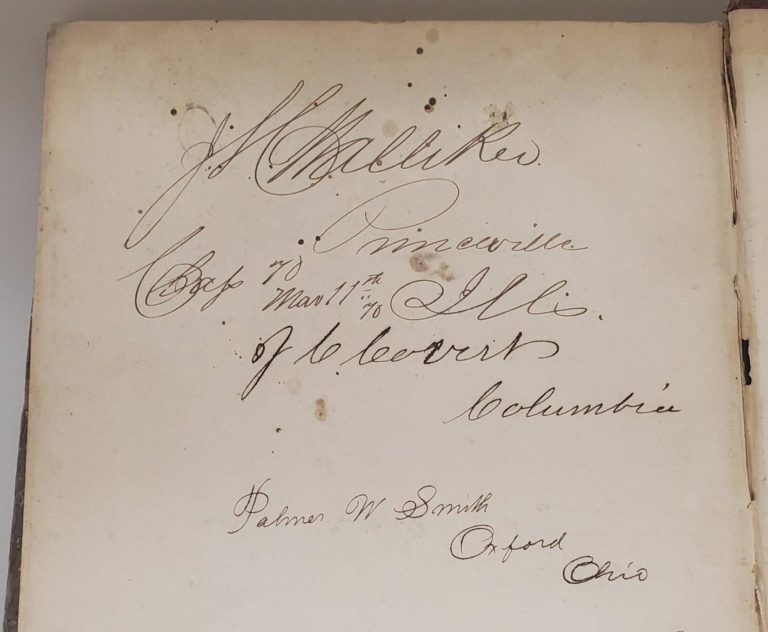 J. H. C. Halliker
Princeville
70
Mar 11th 70 Ills.
J C Covert
Columbia
Palmer W Smith
Oxford
Ohio